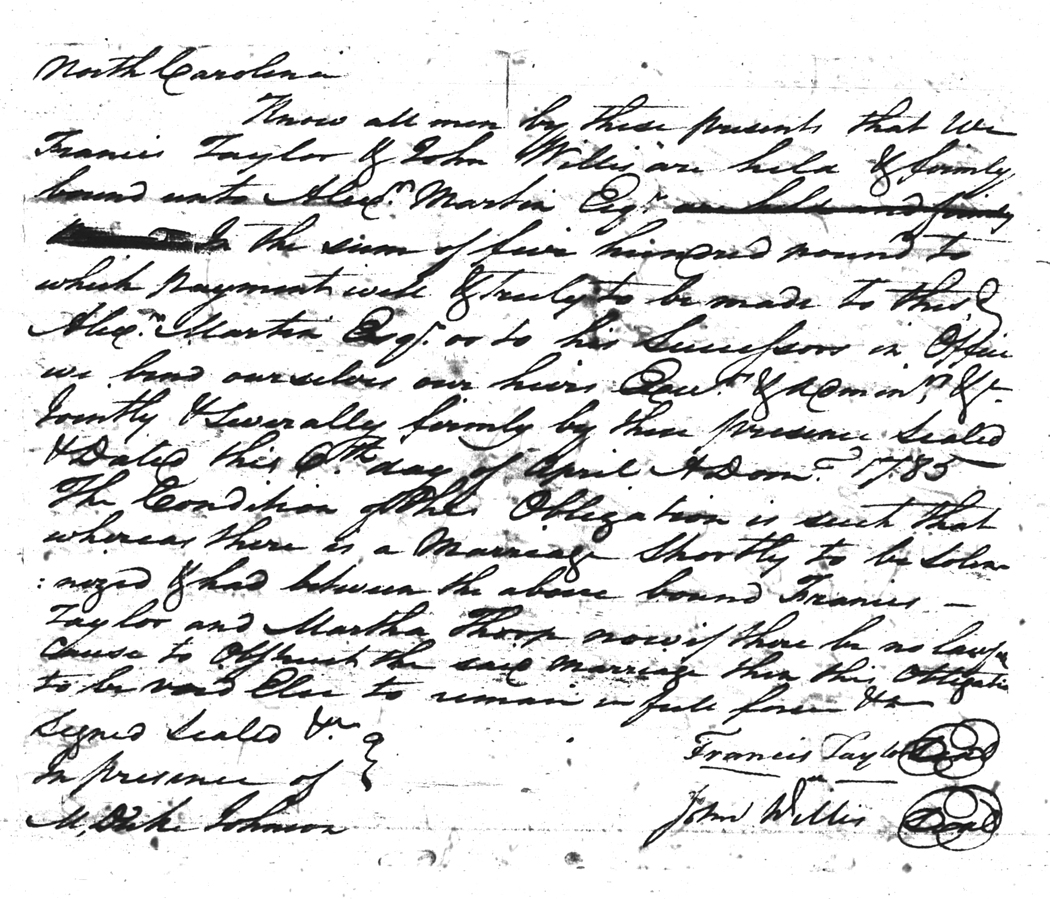 North Carolina
Know all men by these presents that We
Francis Taylor & John Willis are held & firmly
bound unto Alexr. Martin Esqr. are held and firmly
In the sum of five hundred pound to
which payment well & Truly to be made to this
Alexr. Martin Esqr. or to his Successors in Office
we bind ourselves our heirs Exeurs. & Adminrs. &c.
Jointly & Severally firmly by these presence Sealed
& Dated this 6th. day of April A Dom. 1785
The Condition of the Obligation is such that
whereas there is a Marriage Shortly to be Solem
:nized & had between the above bound Francis —
Taylor and Martha Throp now if there be no lawful
Cause to Obstruct the said marriage then this Obligatio
to be void Else to remain in full force &c
Signed Sealed &c
In presence of
M. Duke Johnson
Francis Taylor Seal
John Willis Seal